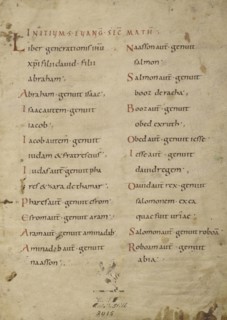 INITIUM S EUANG SEC MATH
Liber generationis ihu
xpi filii david filii
abraham
Abraham genuit isaac
Isaac autem genuit
iacob
Iacob autem genuit
iudam & fratres eius
Iudas aut genuit pha
res & zara de thamar
Phares aut genuit esrom
Esrom aut genuit aram
Aram aut genuit aminadab
Aminadab aut genuit
naasson
Naasson aut genuit
salmon
Salmon aut genuit
booz de racha
Booz aut genuit
obed ex ruth
Obed aut genuit iesse
Iesse aut genuit
david regem
David rex genuit
salomonem ex ea
quae fuit uriae
Salomon aut genuit roboa
Roboam aut genuit
abia